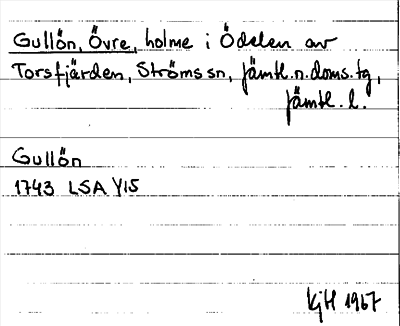 Gullön, Övre, holme i Ödelen av
Torsfjärden, Ströms sn, Jämtl.n.doms.tg,
Jämtl. l.
Gullön
1743 LSA Y15
KjH 1967